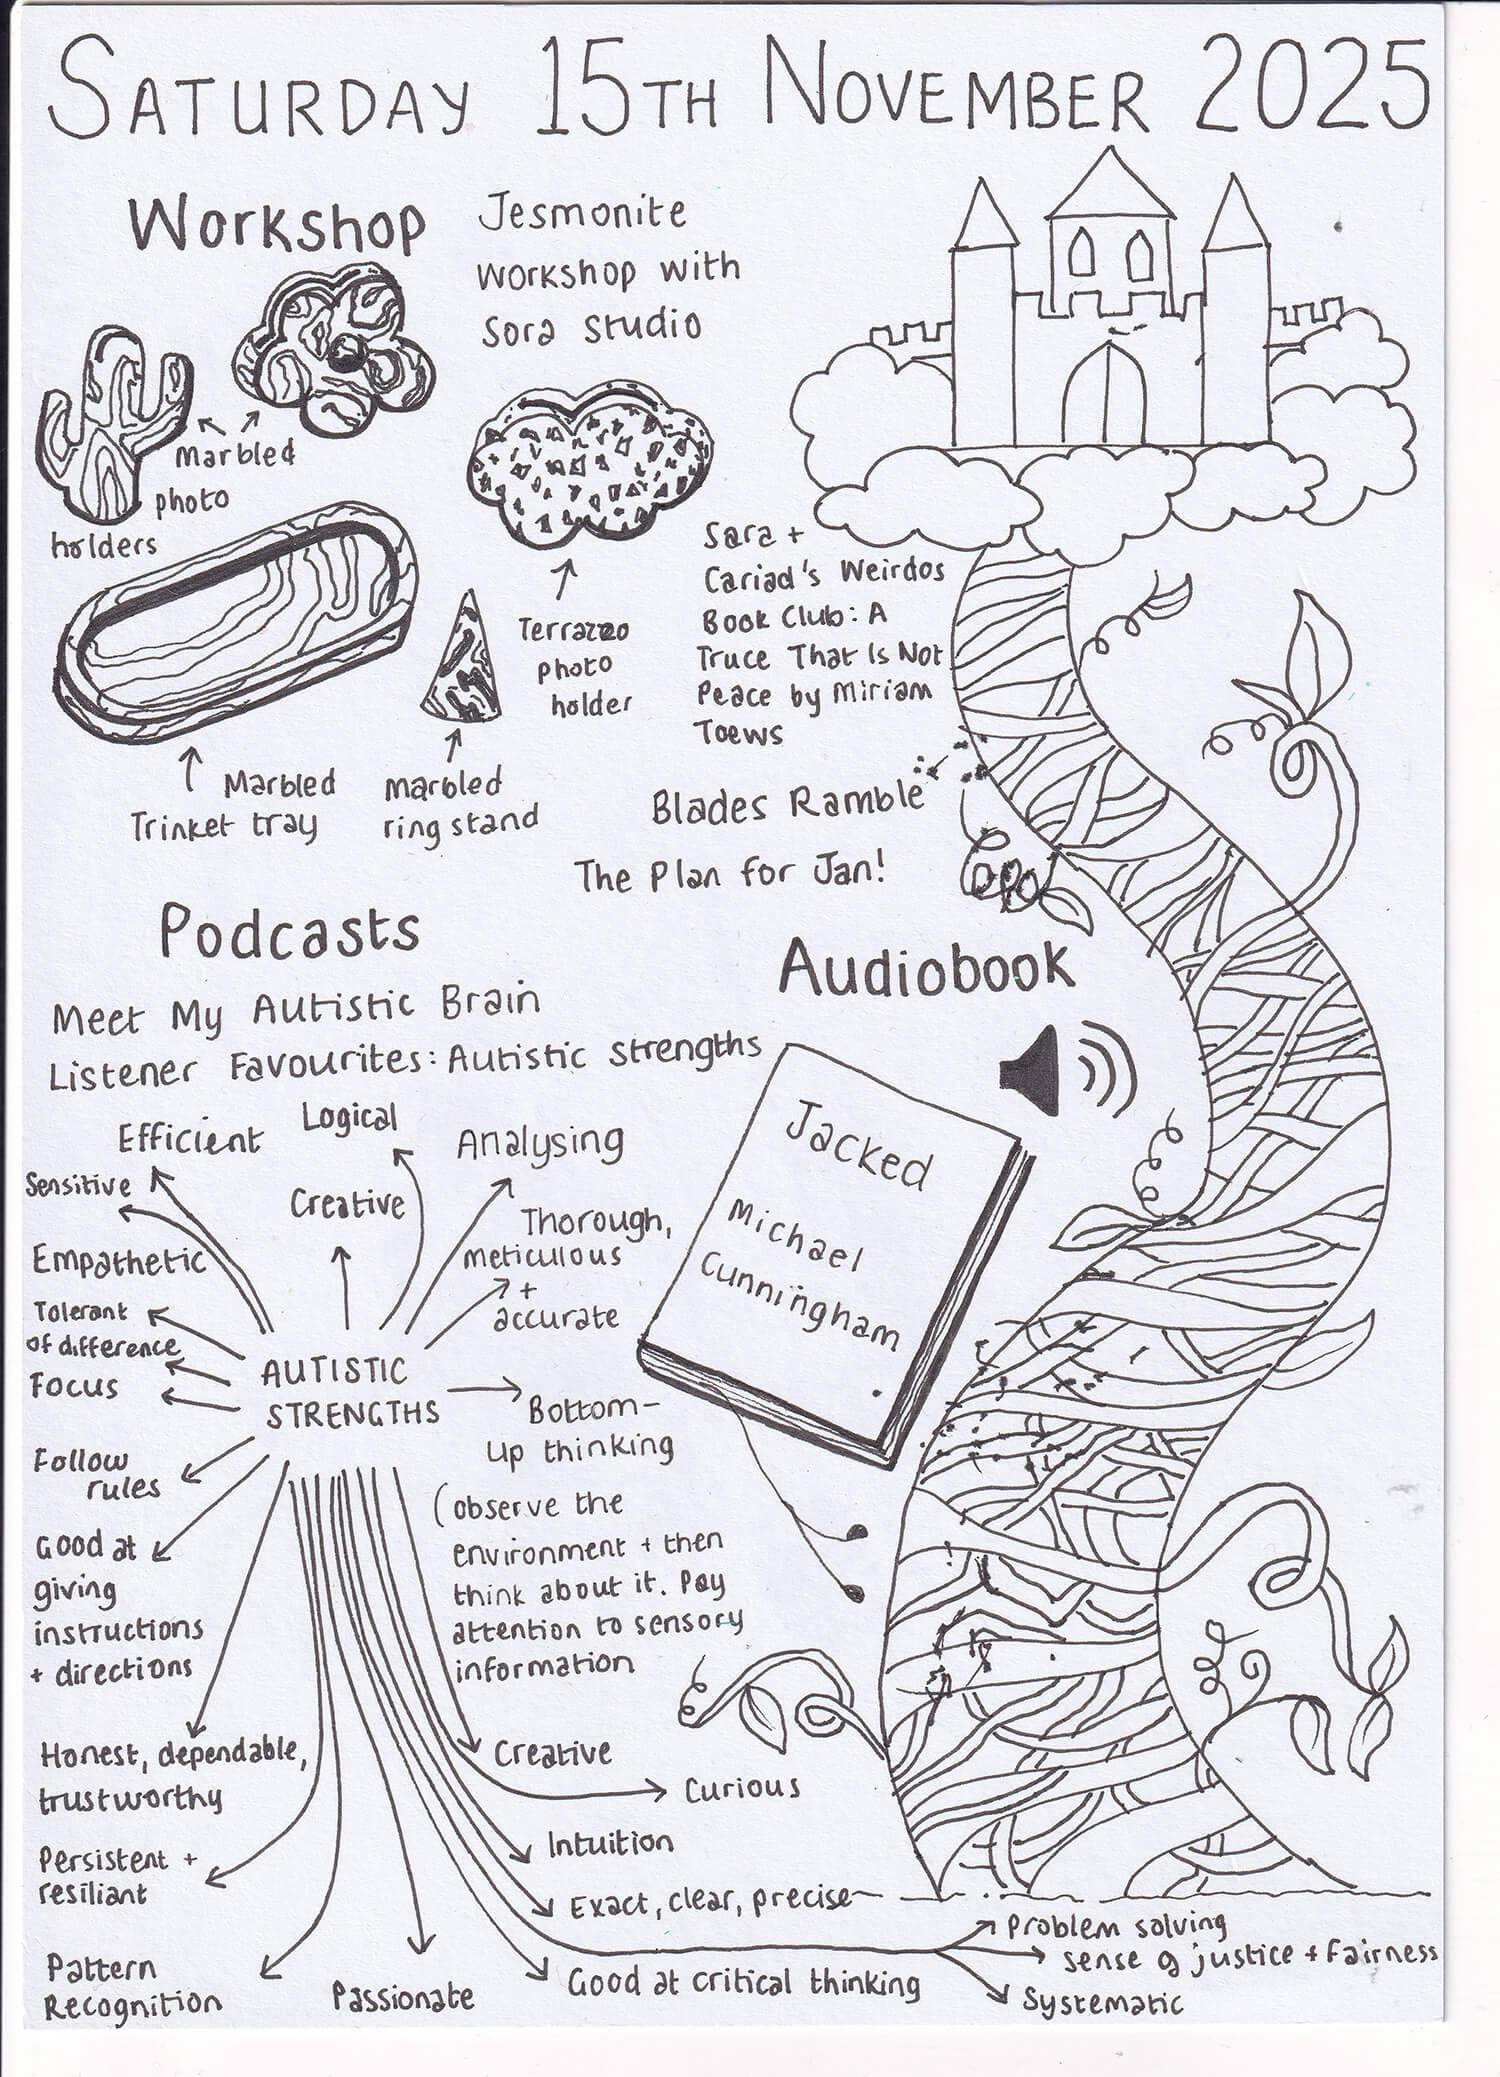 SATURDAY 15TH NOVEMBER 2025
Workshop
Jesmonite
workshop with
Sora studio
Marbled
photo
holders
Terrazzo
photo
holder
Marbled
Trinket tray
marbled
ring stand
Sara +
Cariad's Weirdos
Book Club: A
Truce That Is Not
Peace by Miriam
Toews
Blades Ramble
The Plan for Jan!
Podcasts
Meet My Autistic Brain
Listener Favourites: Autistic strengths
Audiobook
Jacked
Michael
Cunningham
Efficient
Logical
Analysing
Sensitive
Creative
Thorough,
meticulous
+
accurate
Empathetic
Tolerant
of difference
Focus
AUTISTIC
STRENGTHS
Bottom-
up thinking
(observe the
environment + then
think about it. Pay
attention to sensory
information
Follow
rules
Good at
giving
instructions
+ directions
Honest, dependable,
trustworthy
Persistent +
resiliant
Pattern
Recognition
Passionate
Creative
Curious
Intuition
Exact, clear, precise
Good at critical thinking
Problem solving
sense of justice + Fairness
Systematic